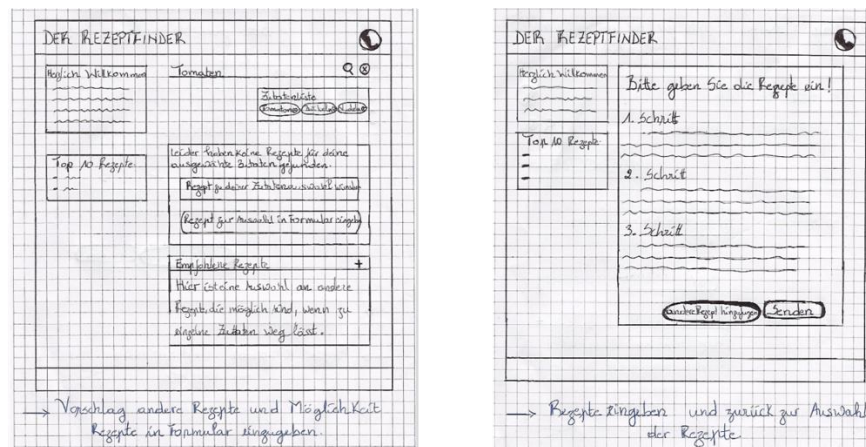 DER REZEPTFINDER
Herzlich Willkommen
Top 10 Rezepte
Tomaten
Zutatenliste
Tomaten
Leider haben keine Rezepte für deine
ausgewählte Zutaten gefunden.
Rezept zu deiner Zutatenauswahl
Rezept zur Auswahl in Formular eingeben
Empfohlene Rezepte +
Hier ist eine Auswahl an andere
Rezepte, die möglich sind, wenn zu
einzelne Zutaten weg lässt.
→ Vorschlag andere Rezepte und Möglichkeit
Rezepte in Formular einzugeben.
DER REZEPTFINDER
Herzlich Willkommen
Top 10 Rezepte
Bitte geben Sie die Rezepte ein!
1. Schritt
2. Schritt
3. Schritt
andere Rezept hinzufügen
Senden
→ Rezepte eingeben und zurück zur Auswahl
der Rezepte